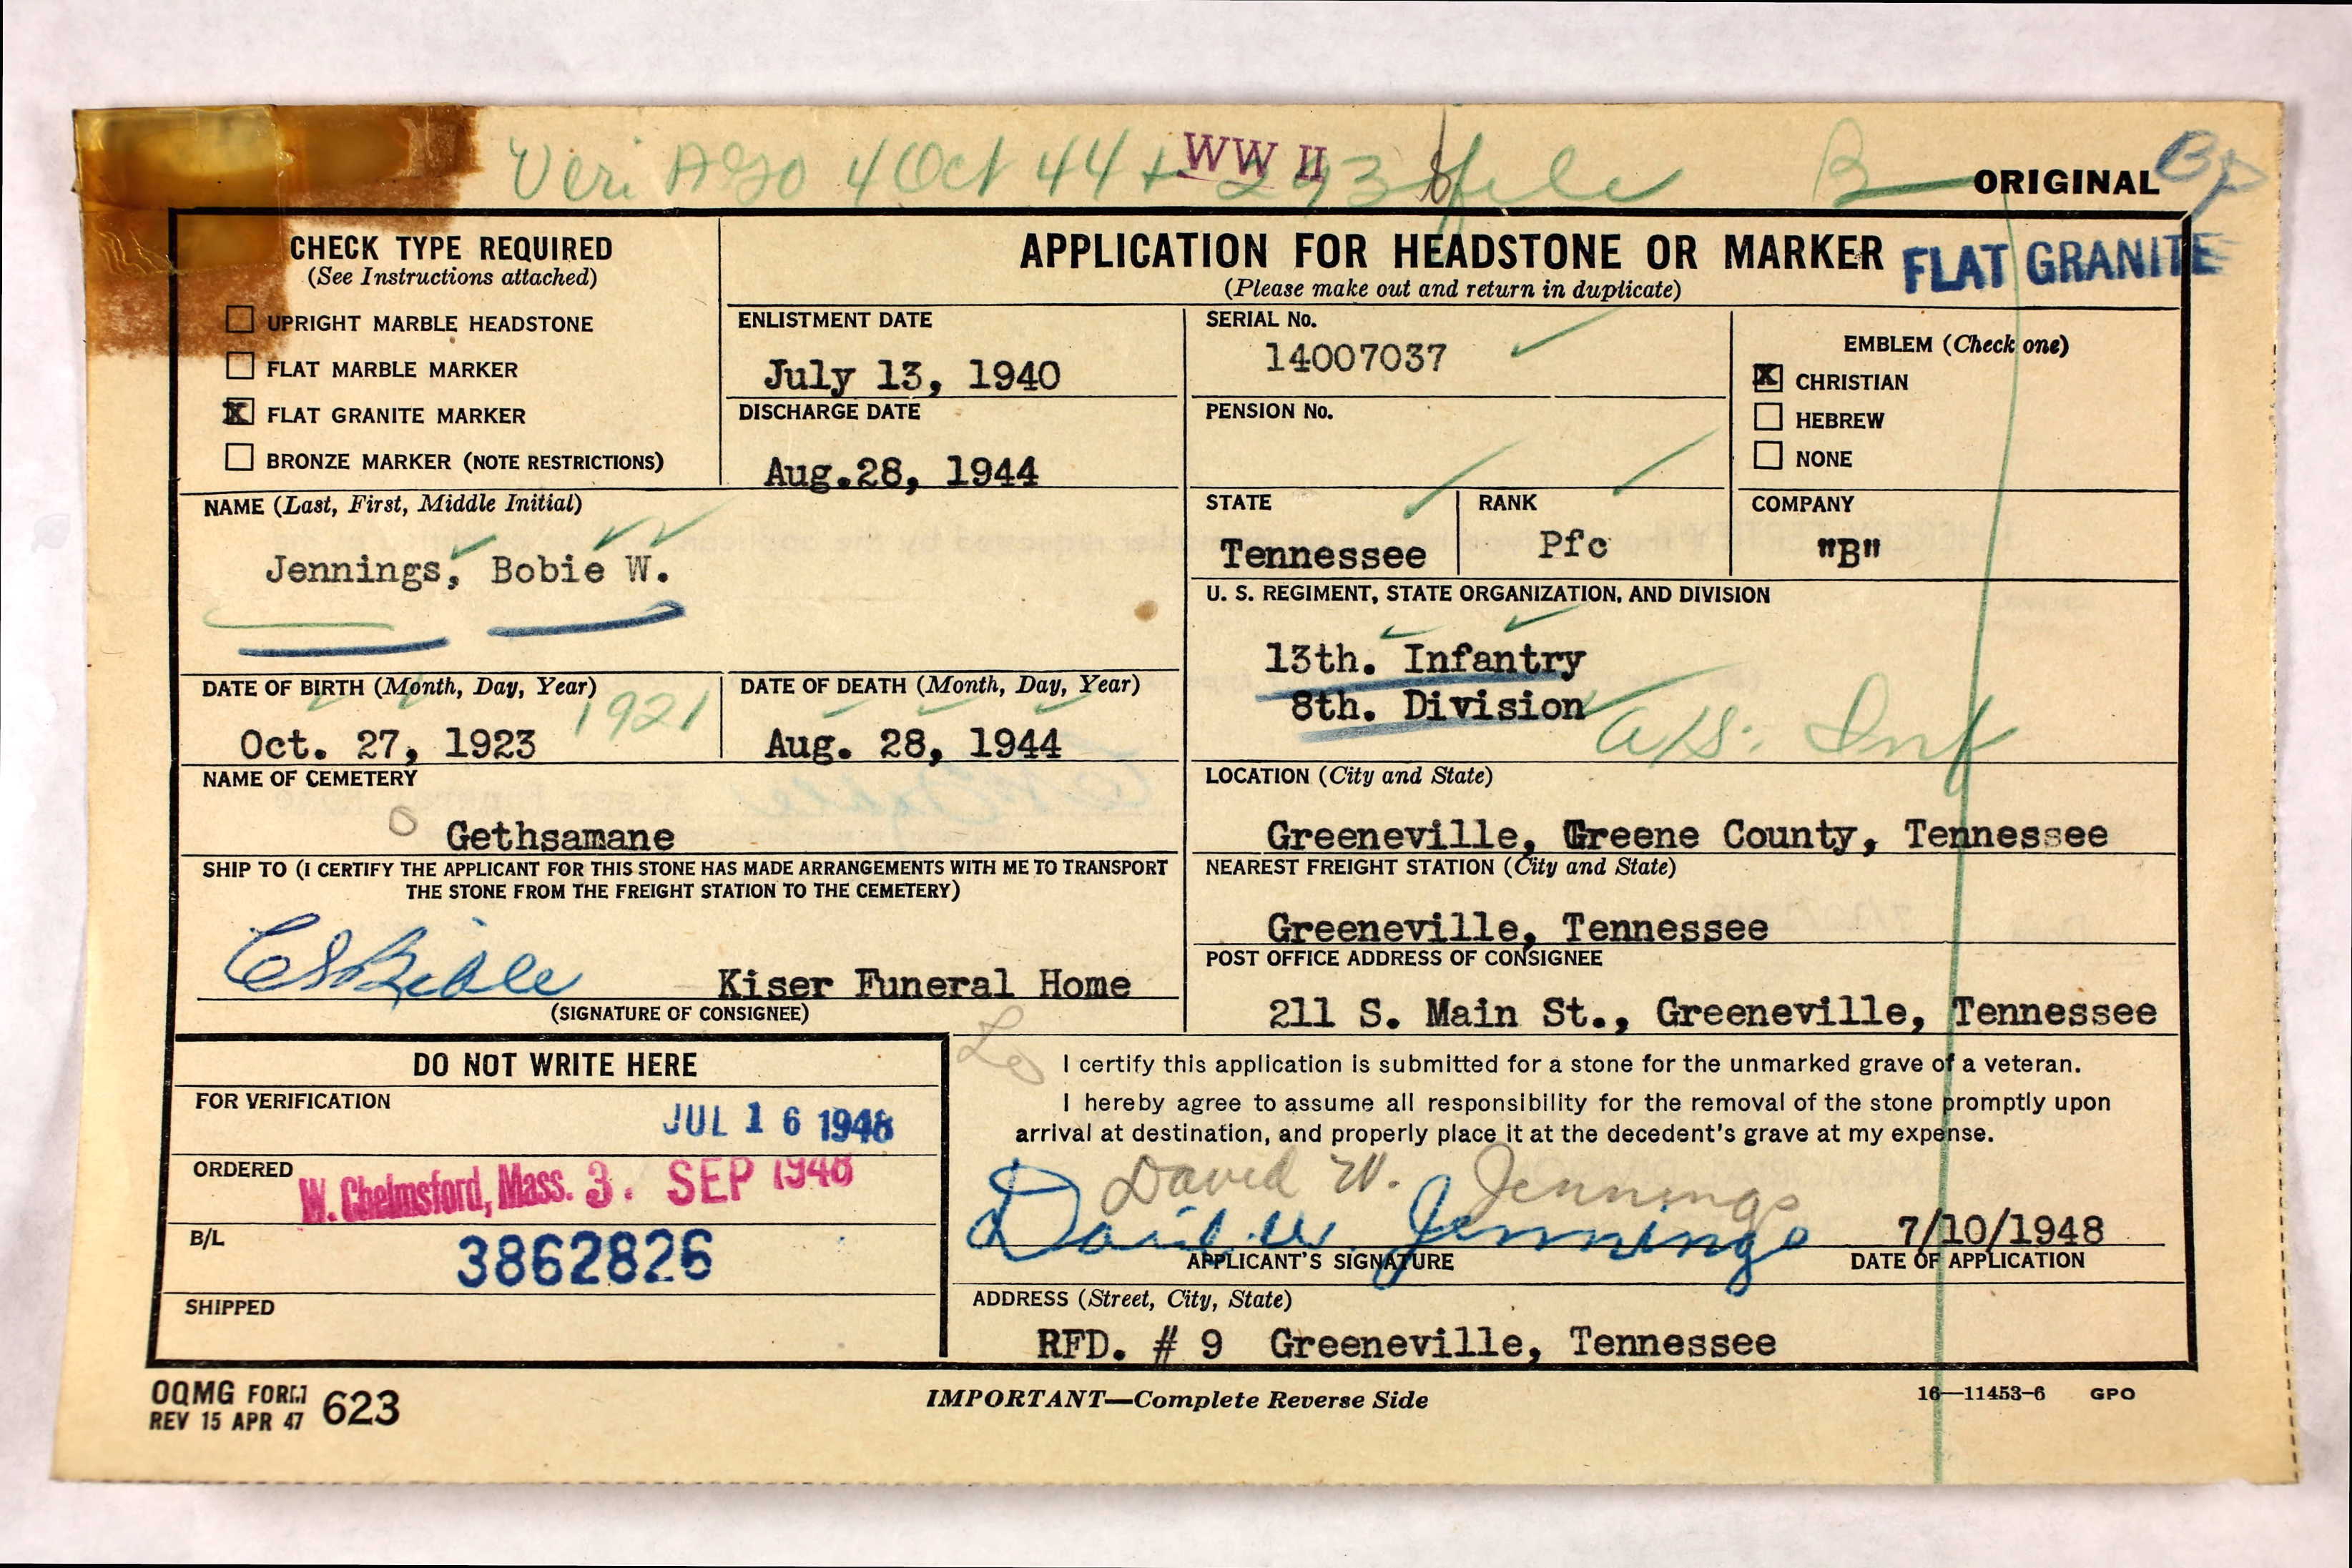 Veri AGO 4 Oct 44 + 293 file
WW II
B
ORIGINAL
CHECK TYPE REQUIRED
(See Instructions attached)
UPRIGHT MARBLE HEADSTONE
FLAT MARBLE MARKER
X FLAT GRANITE MARKER
BRONZE MARKER (NOTE RESTRICTIONS)
APPLICATION FOR HEADSTONE OR MARKER
(Please make out and return in duplicate)
FLAT GRANITE
ENLISTMENT DATE
July 13, 1940
DISCHARGE DATE
Aug.28, 1944
SERIAL No.
14007037
PENSION No.
EMBLEM (Check one)
X CHRISTIAN
HEBREW
NONE
NAME (Last, First, Middle Initial)
Jennings, Bobie W.
STATE
Tennessee
RANK
Pfc
COMPANY
"B"
U. S. REGIMENT, STATE ORGANIZATION, AND DIVISION
13th. Infantry
8th. Division
a/s: Inf
DATE OF BIRTH (Month, Day, Year)
1921
Oct. 27, 1923
DATE OF DEATH (Month, Day, Year)
Aug. 28, 1944
NAME OF CEMETERY
Gethsamane
LOCATION (City and State)
Greeneville, Greene County, Tennessee
SHIP TO (I CERTIFY THE APPLICANT FOR THIS STONE HAS MADE ARRANGEMENTS WITH ME TO TRANSPORT
THE STONE FROM THE FREIGHT STATION TO THE CEMETERY)
C S Bible Kiser Funeral Home
(SIGNATURE OF CONSIGNEE)
NEAREST FREIGHT STATION (City and State)
Greeneville, Tennessee
POST OFFICE ADDRESS OF CONSIGNEE
211 S. Main St., Greeneville, Tennessee
DO NOT WRITE HERE
FOR VERIFICATION
JUL 16 1948
ORDERED
W. Chelmsford, Mass. 3. SEP 1948
B/L
3862826
SHIPPED
I certify this application is submitted for a stone for the unmarked grave of a veteran.
I hereby agree to assume all responsibility for the removal of the stone promptly upon
arrival at destination, and properly place it at the decedent's grave at my expense.
David W. Jennings
David W. Jennings
7/10/1948
APPLICANT'S SIGNATURE
DATE OF APPLICATION
ADDRESS (Street, City, State)
RFD. # 9 Greeneville, Tennessee
OQMG FORM 623
REV 15 APR 47
IMPORTANT—Complete Reverse Side
16—11453-6 GPO